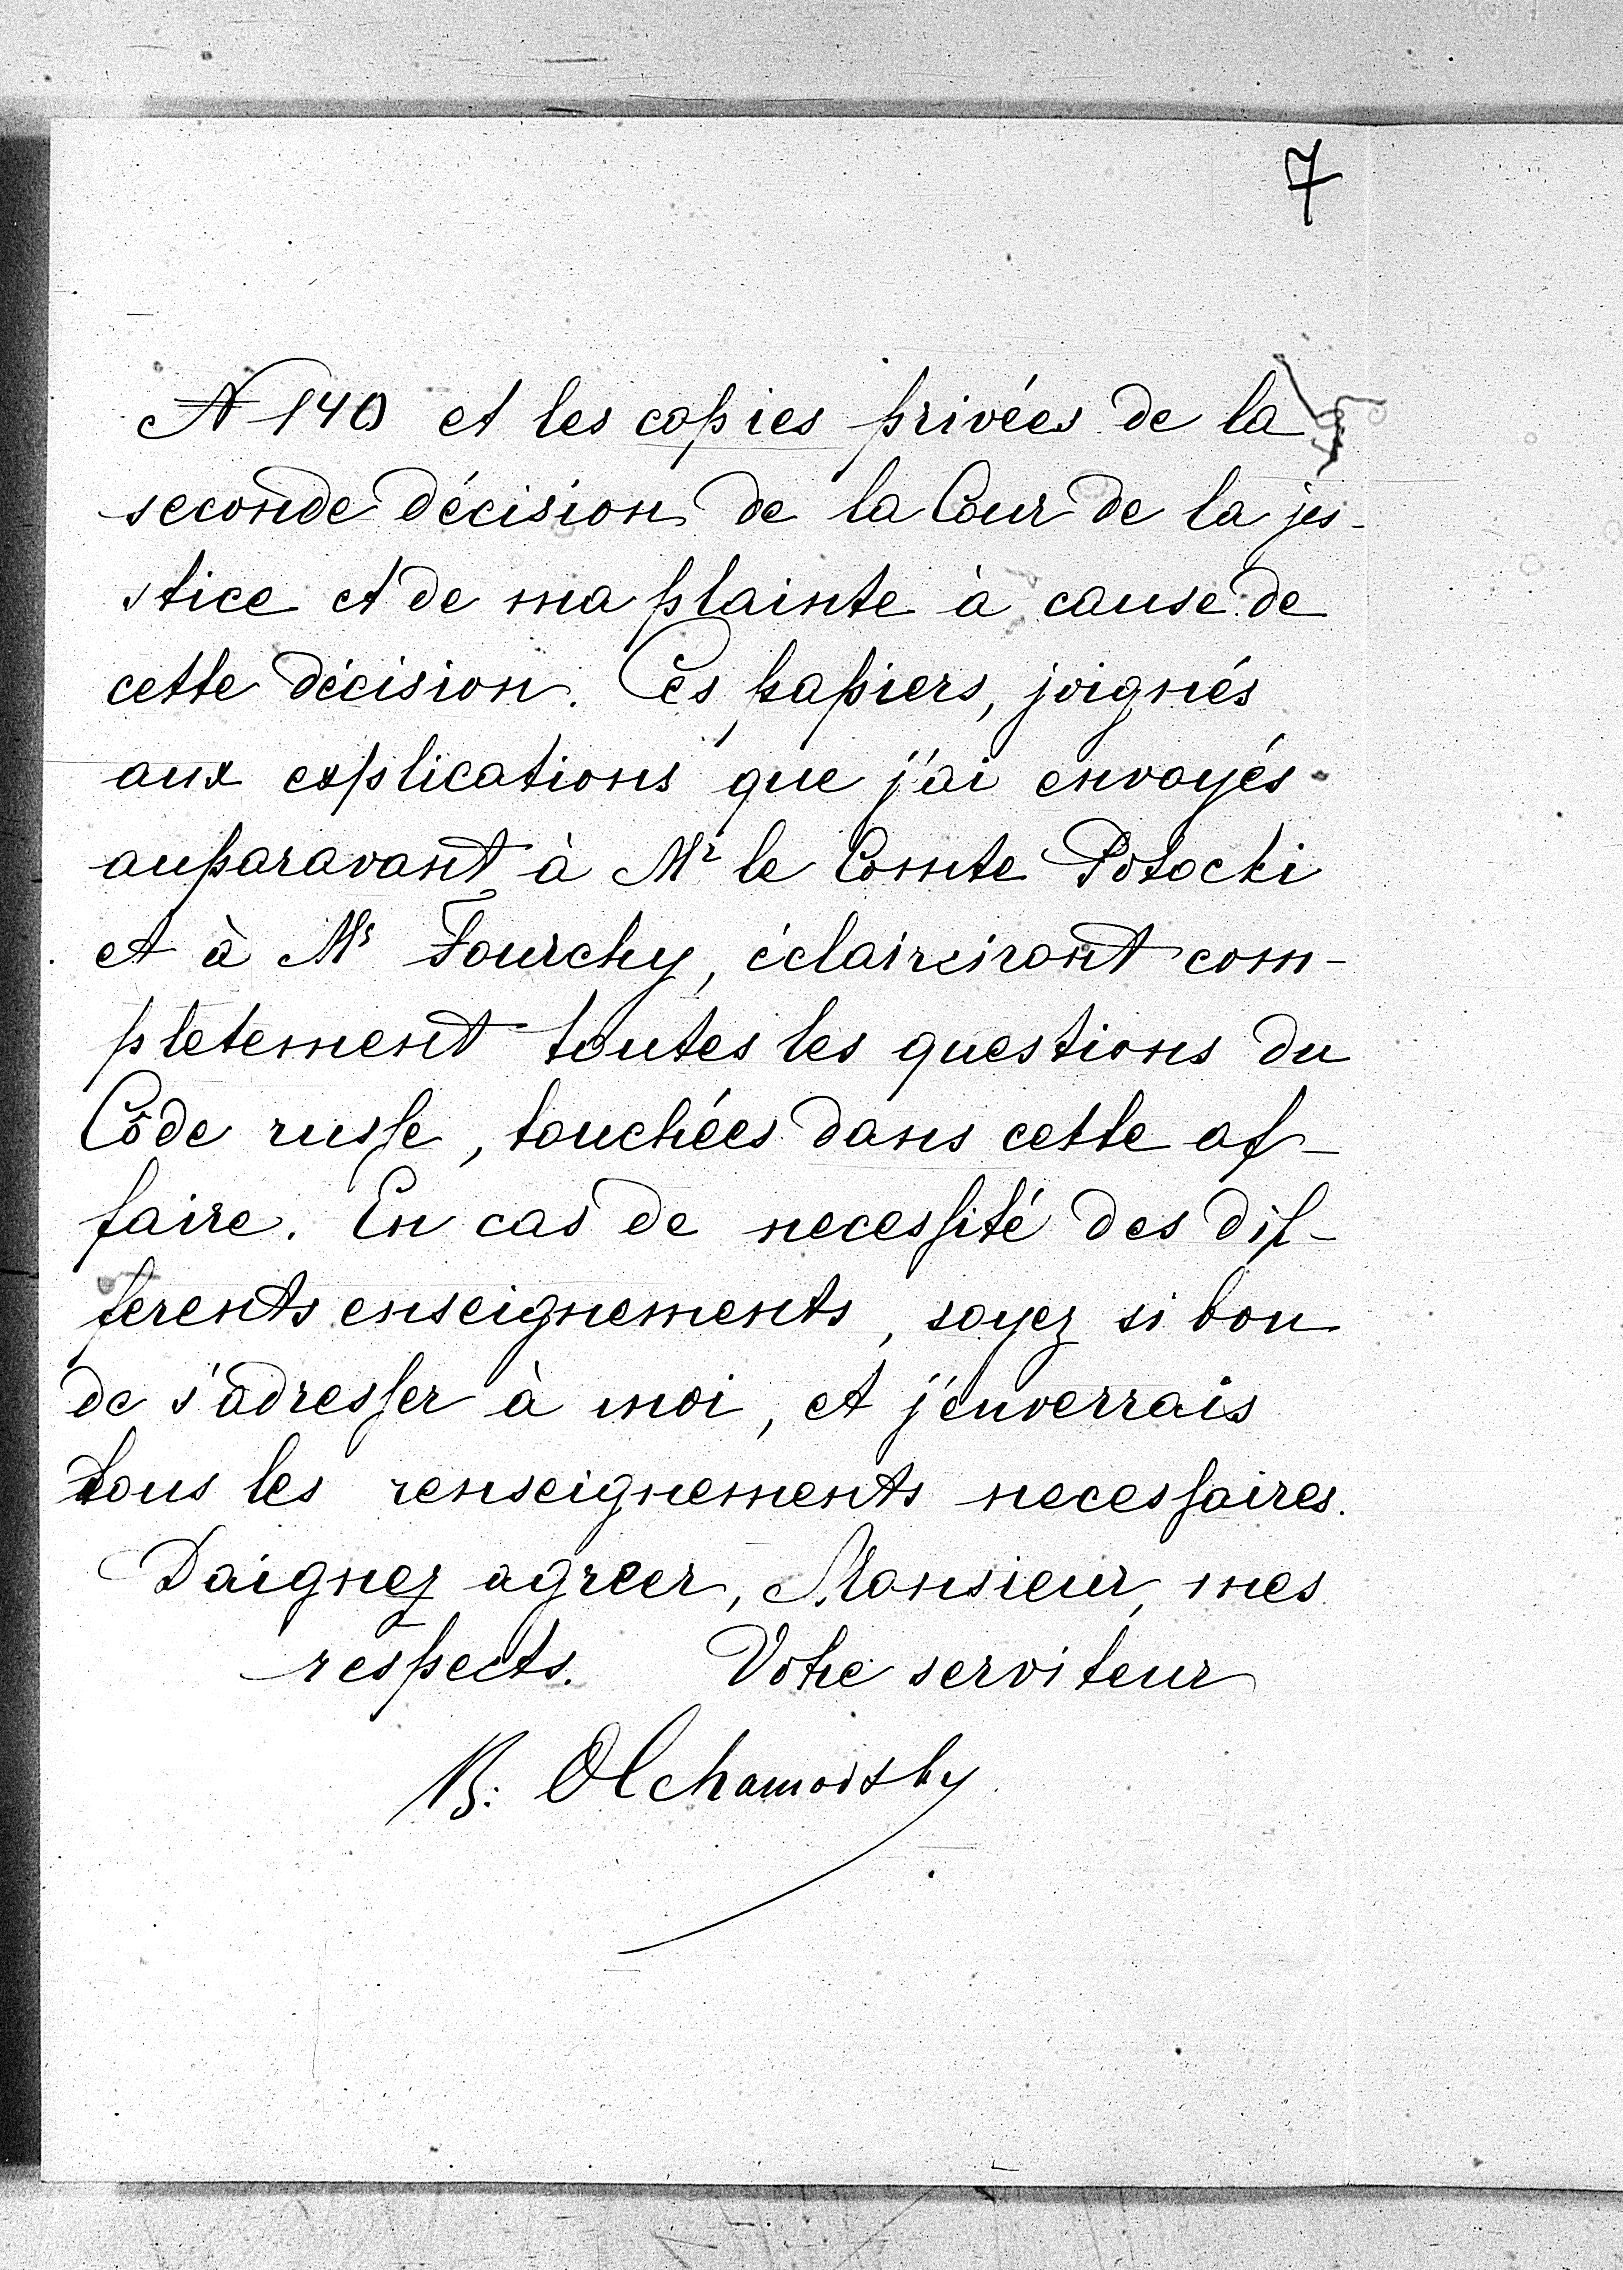 7
N 140 et les copies privées de la
seconde décision de la Cour de la ju-
stice et de ma plainte à cause de
cette décision. Ces papiers, joignés
aux explications que j'ai envoyés
auparavant à Mr le Comte Potocki
et à Mr Fourchy, éclairciront com-
pletement toutes les questions du
Côde russe, touchées dans cette af-
faire. En cas de necessité des dif-
ferents enseignements, soyez si bon
de s'adresser à moi, et j'enverrais
tous les renseignements necessaires.
Daignez agreer, Monsieur, mes
respects. Votre serviteur
B. Olchamovsky